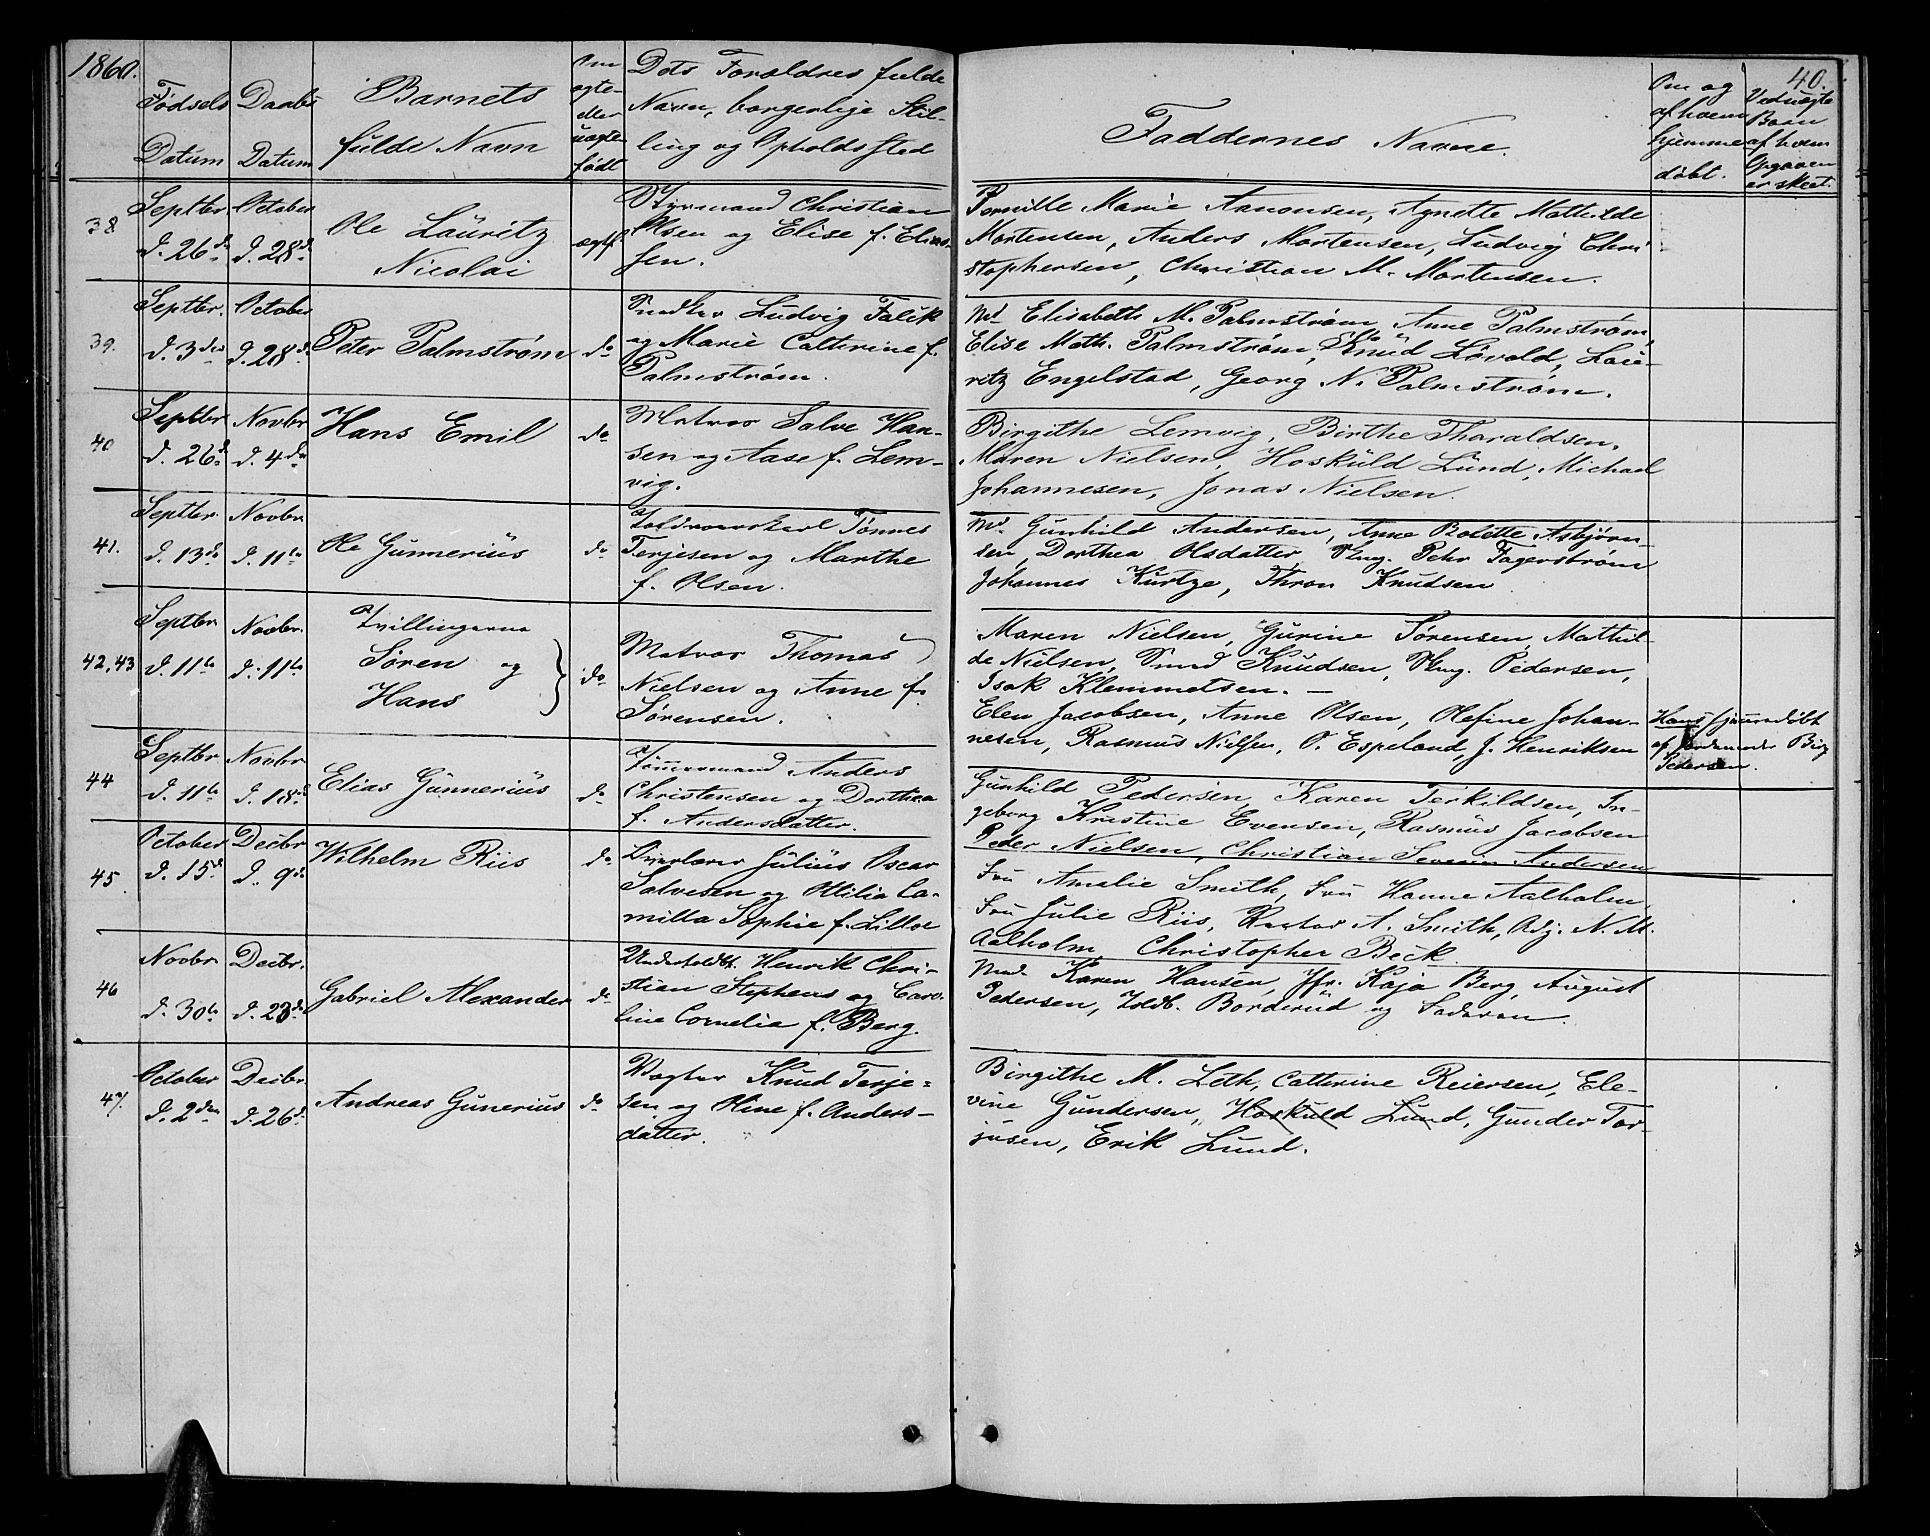 1860.
40.
Fødsels Datum
Daabs Datum
Barnets fulde Navn
Om ægte eller uægte født
Dets Forældres fulde
Navn, borgerlige Stil-
ling og Opholdssted
Faddernes Navne.
Om og af hvem hjemme døbt.
Ved uægte Børn af hvem Opgaven er skeet.
38
Septbr. d. 26de
October d. 28de
Ole Lauritz
Nicolai
ægtf.
Styrmand Christian
Olsen og Elise f. Elias-
sen.
Pernille Marie Aanonsen, Agnette Mathilde
Mortensen, Anders Mortensen, Ludvig Chri-
stophersen, Christian M. Mortensen.
39.
Septbr. d. 3die
October d. 28de
Peter Palmstrøm
do
Snedker Ludvig Falck
og Marie Cathrine f.
Palmstrøm.
Md Elisabeth M. Palmstrøm, Anne Palmstrøm,
Elise Math. Palmstrøm, Knud Løvold, Lau-
ritz Engelstad, Georg N. Palmstrøm.
40
Septbr d. 26de
Novbr d. 4de
Hans Emil
do
Matros Salve Han-
sen og Aase f. Lem-
vig.
Birgithe Lemvig, Birthe Tharaldsen,
Maren Nielsen, Hoskuld Lund, Michael
Johannesen, Jonas Nielsen.
41.
Septbr. d. 13de
Novbr. d. 11te
Ole Gunnerius
do
Toldroerskarl Tønnes
Terjesen og Marthe
f. Olsen.
Md. Gunhild Andersen, Anne Bolette Asbjørn-
sen, Dorthea Olsdatter, Ung. Pehr Fagerstrøm
Johannes Kurtze, Thron Knudsen
42, 43
Septbr d. 11te
Novbr. d. 11te
Tvillingerne
Søren og
Hans
do
Matros Thomas
Nielsen og Anne f.
Sørensen.
Maren Nielsen, Gurine Sørensen, Mathil-
de Nielsen, Svend Knudsen, Ung. Pedersen,
Isak Klemmetsen. –
Elen Jacobsen, Anne Olsen, Olefine Johan-
nesen, Rasmus Nielsen, O. Espeland, J. Henriksen
Hans hjemmedøbt
af Jordemoder
Pedersen.
44
Septbr d. 11te
Novbr d. 18de
Elias Gunnerius
do
Tømmermand Anders
Christensen og Dorthea
f. Andersdatter.
Gunhild Pedersen, Karen Terkildsen, In-
geborg Kristine Evensen, Rasmus Jacobsen
Peder Nielsen, Christian Severin Andersen
45
October d. 15de
Decbr d. 9de
Wilhelm Riis
do
Julius Oscar
Salvesen og Otilia Ca-
milla Sophie f. Lilloe
Fru Amalie Smith, Fru Hanne Aalholm
Fru Julie Riis, Rector A. Smith, Adj. N. M.
Aalholm Christopher Beck.
46
Novbr d. 30te
Decbr. d. 23de
Gabriel Alexander
do
Undertoldbt. Henrik Chri-
stian Stephens og Caro-
line Cornelia f. Berg.
Mad Karen Hansen, Jfr. Kaja Berg, August
Pedersen, Toldb. Borderud og Faderen.
47.
October d. 2den
Decbr. d. 26de
Andreas Gunerius
do
Vægter Knud Terje-
sen og Oline f. Anders-
datter.
Birgithe M. Leth, Cathrine Reiersen, Ele-
vine Gundersen, Hoskuld Lund, Gunder Tor-
jusen, Erik Lund.